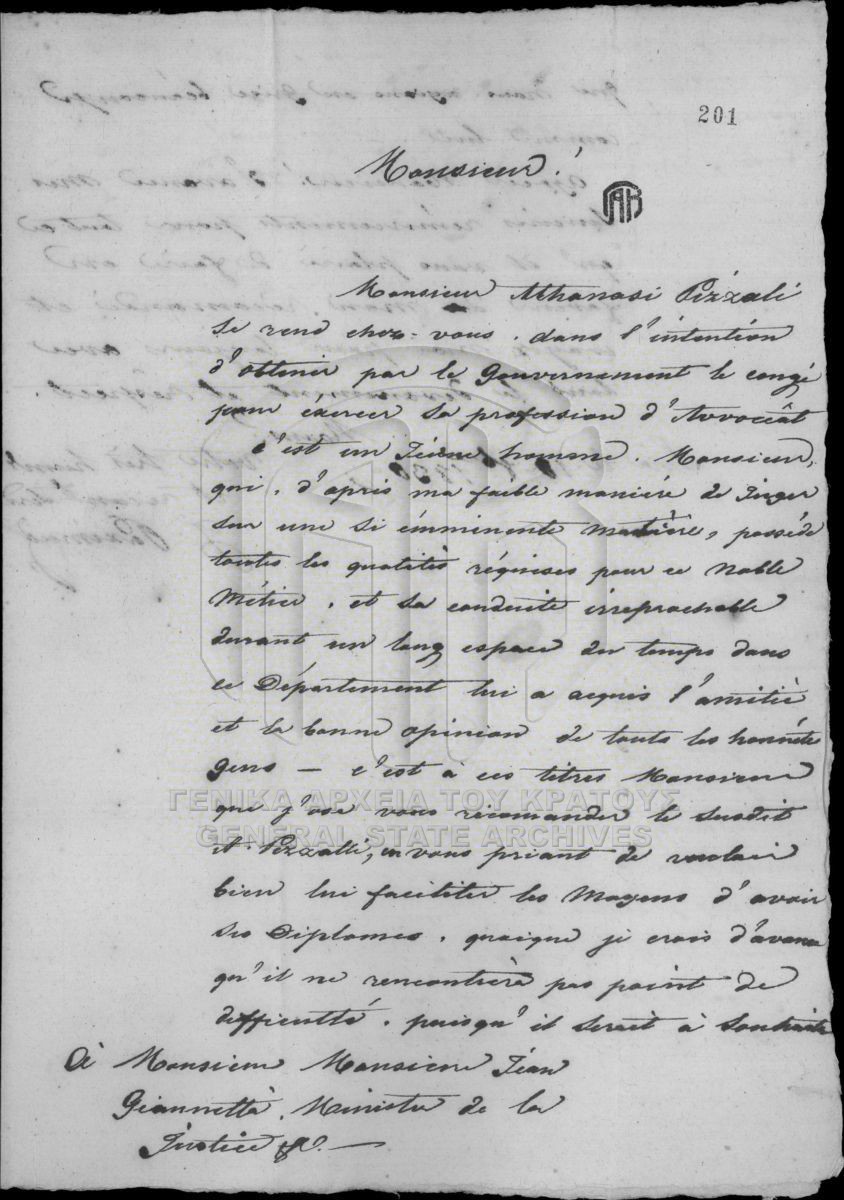 201
Monsieur!
Monsieur Athanasi Pizzali
se rend chez-vous, dans l'intention
d'obtenir par le Gouvernement le congé
pour éxercer sa profession d'Avvocât
c'est un Jéune homme, Monsieur,
qui, d'après ma faible maniére de Juger
sur une si émminente matière, posséde
toutes les qualités réquises pour ce Noble
Métier, et sa conduite irreprochable
durant un long espace du temps dans
ce Département lui a acquis l'amitiè
et la bonne opinion de touts les honnéte
gens — c'est à ces titres Monsieur
que j'ose vous récomander le susdit
A. Pizzalli, en vous priant de vouloir
bien lui faciliter les Moyens d'avoir
ses Diplomes, quoique je crois d'avance
qu'il ne rencontrèra pas point de
difficulté, puisqu'il serait à souhaite
ΓΕΝΙΚΑ ΑΡΧΕΙΑ ΤΟΥ ΚΡΑΤΟΥΣ
GENERAL STATE ARCHIVES
À Monsieur Monsieur Jéan
Giannettà, Ministre de la
Justice &. —